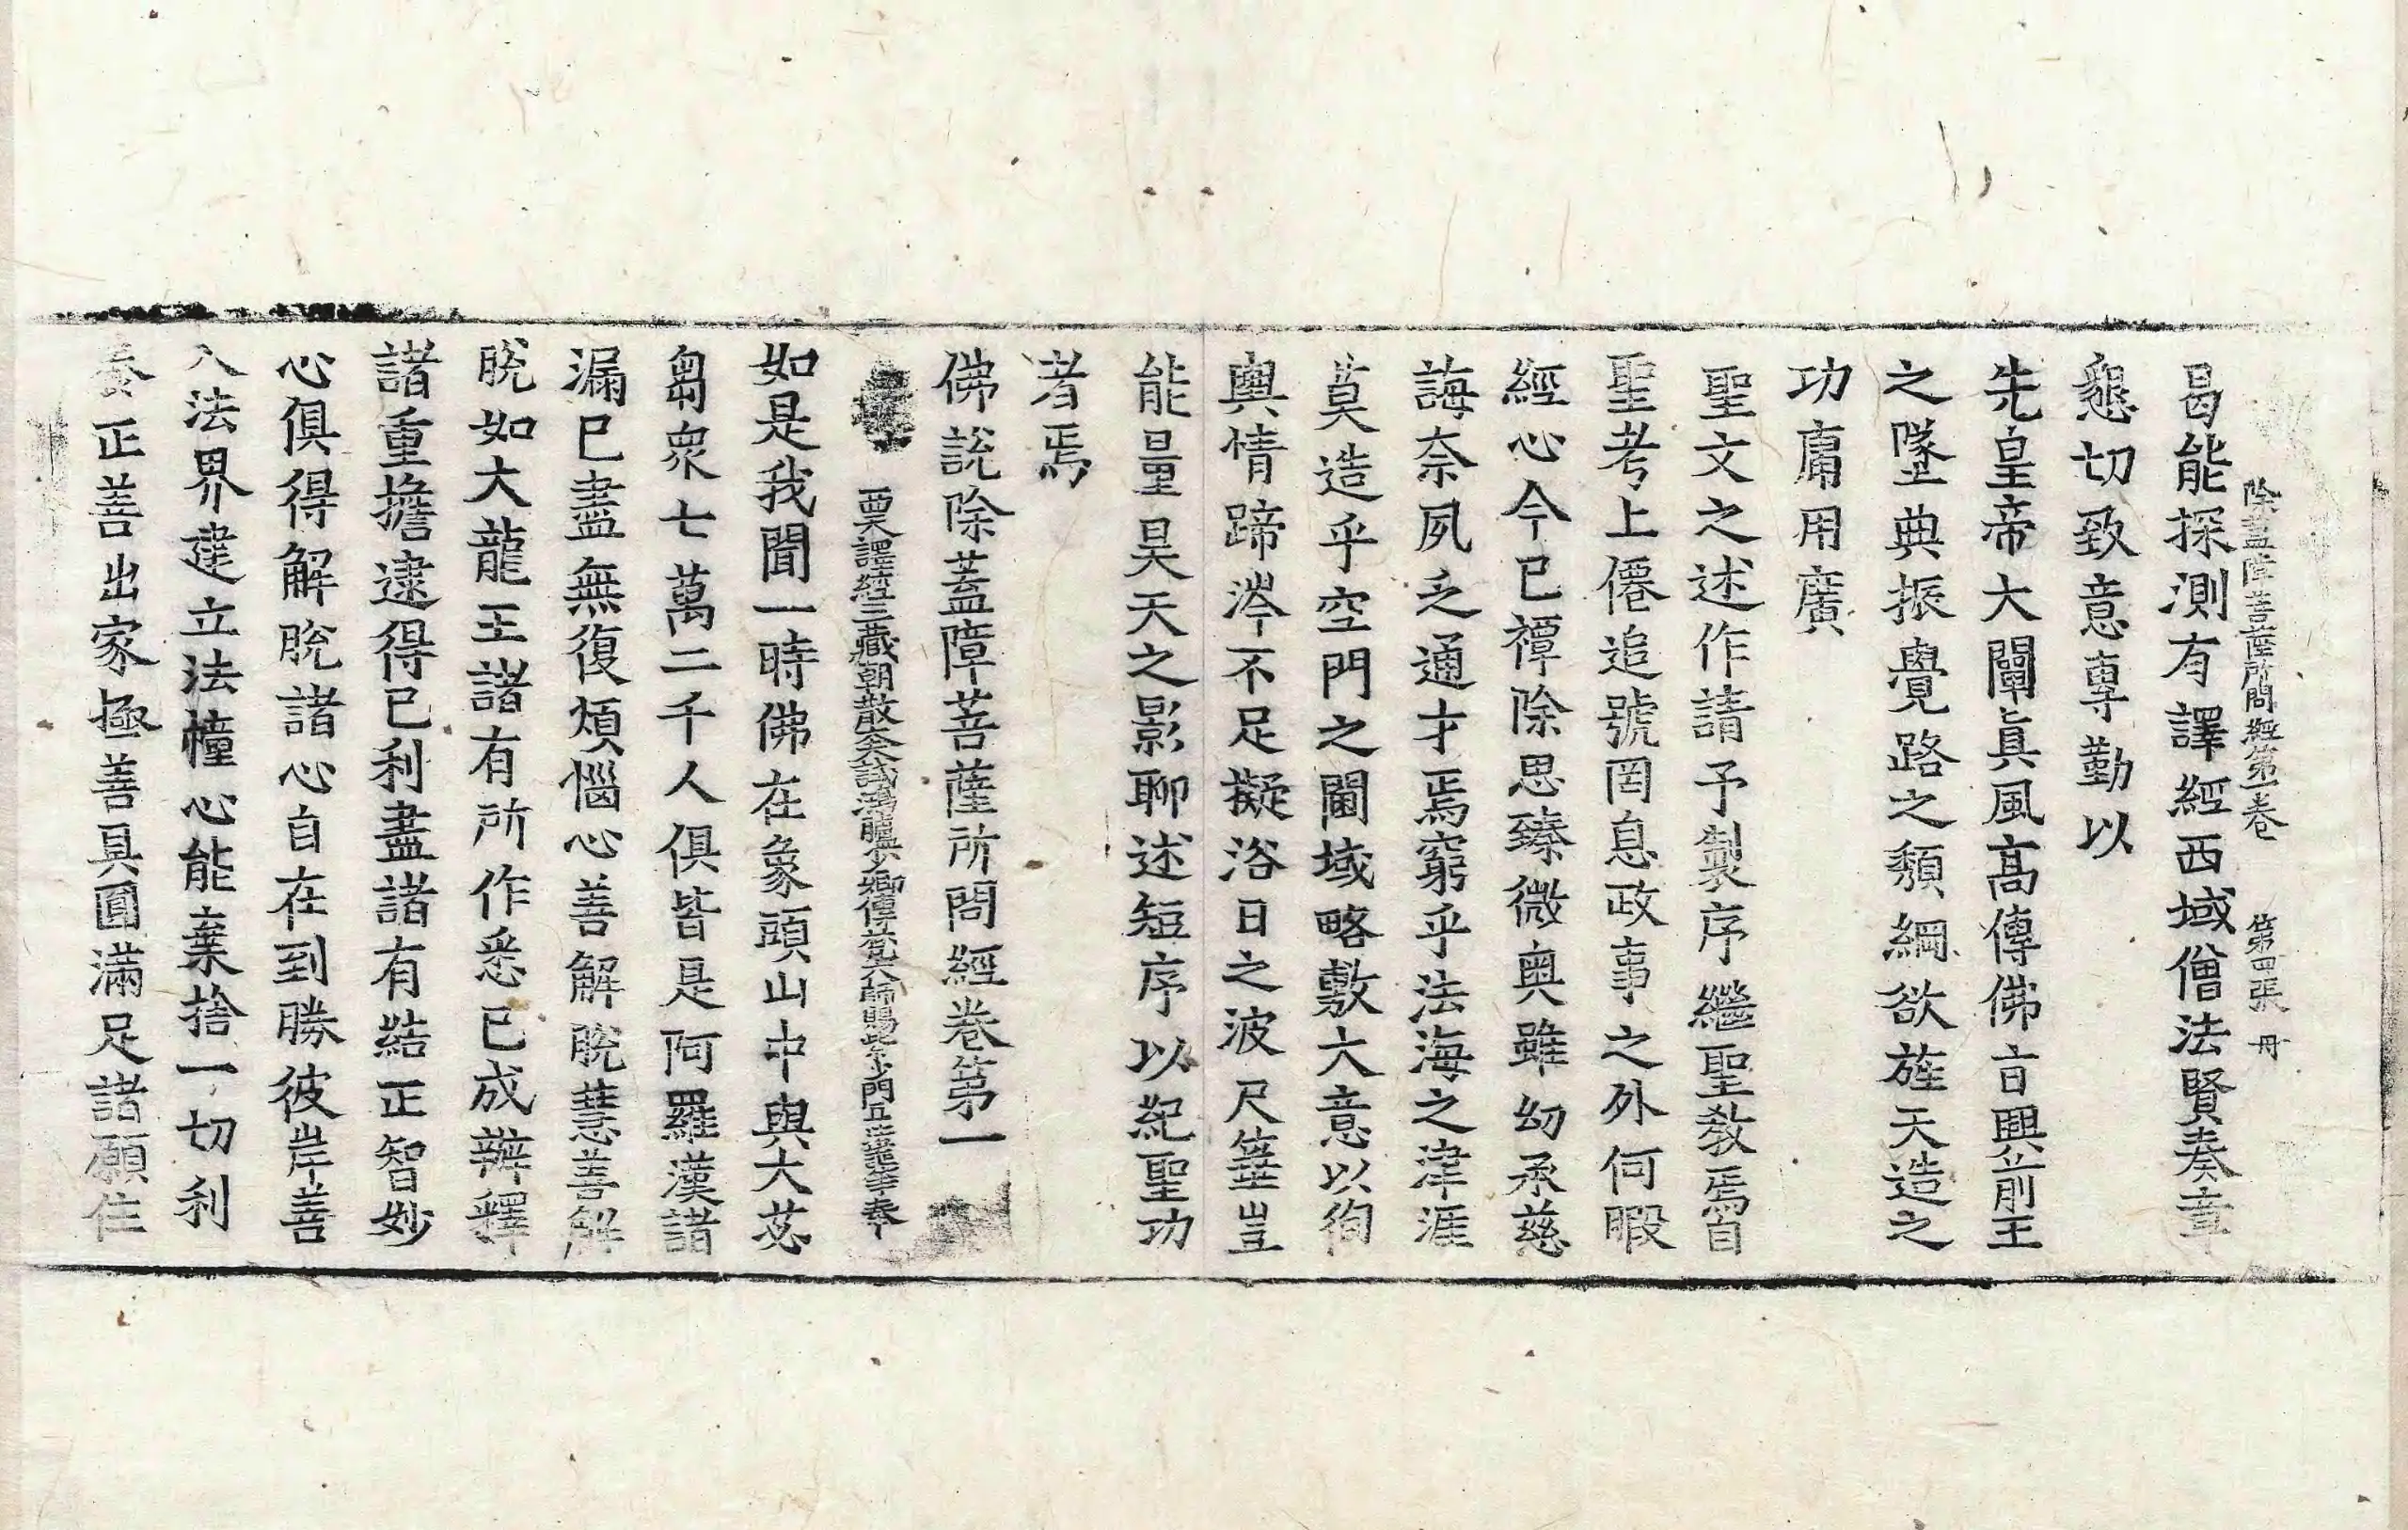 除蓋障菩薩所問經第一卷 第四張 冊
曷能探測有譯經西域僧法賢奏章
懇切致意專勤以
先皇帝大闡眞風高傳佛言興前王
之墜典振覺路之頹綱欲旌天造之
功庸用廣
聖文之述作請予製序繼聖教焉自
聖考上僊追號罔息政事之外何暇
經心今已禫除思臻微奧雖幼承慈
誨奈夙乏通才焉窮乎法海之津涯
莫造乎空門之閫域略敷大意以徇
輿情蹄涔不足擬浴日之波尺箠豈
能量昊天之影聊述短序以紀聖功
者焉
佛說除蓋障菩薩所問經卷第一
西天譯經三藏朝散大夫試鴻臚少卿傳梵大師賜紫沙門臣法護等奉
如是我聞一時佛在象頭山中與大苾
芻衆七萬二千人俱皆是阿羅漢諸
漏已盡無復煩惱心善解脫慧善解
脫如大龍王諸有所作悉已成辦釋
諸重擔逮得已利盡諸有結正智妙
心俱得解脫諸心自在到勝彼岸善
入法界建立法幢心能棄捨一切利
養正善出家極善具圓滿足諸願住